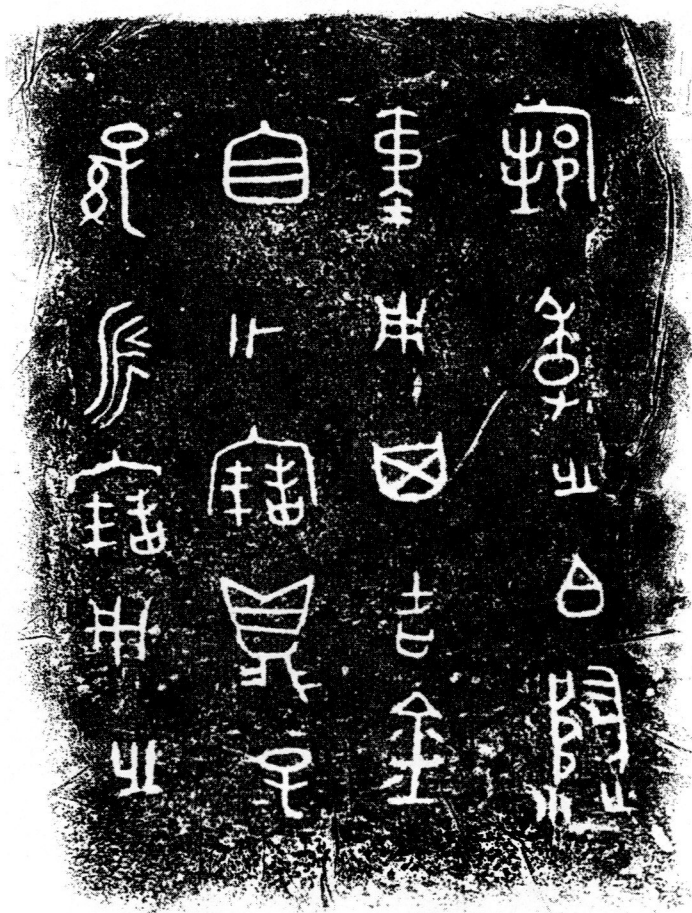 之白歸
用其吉金
自乍寶鼎子
孫永寶用之